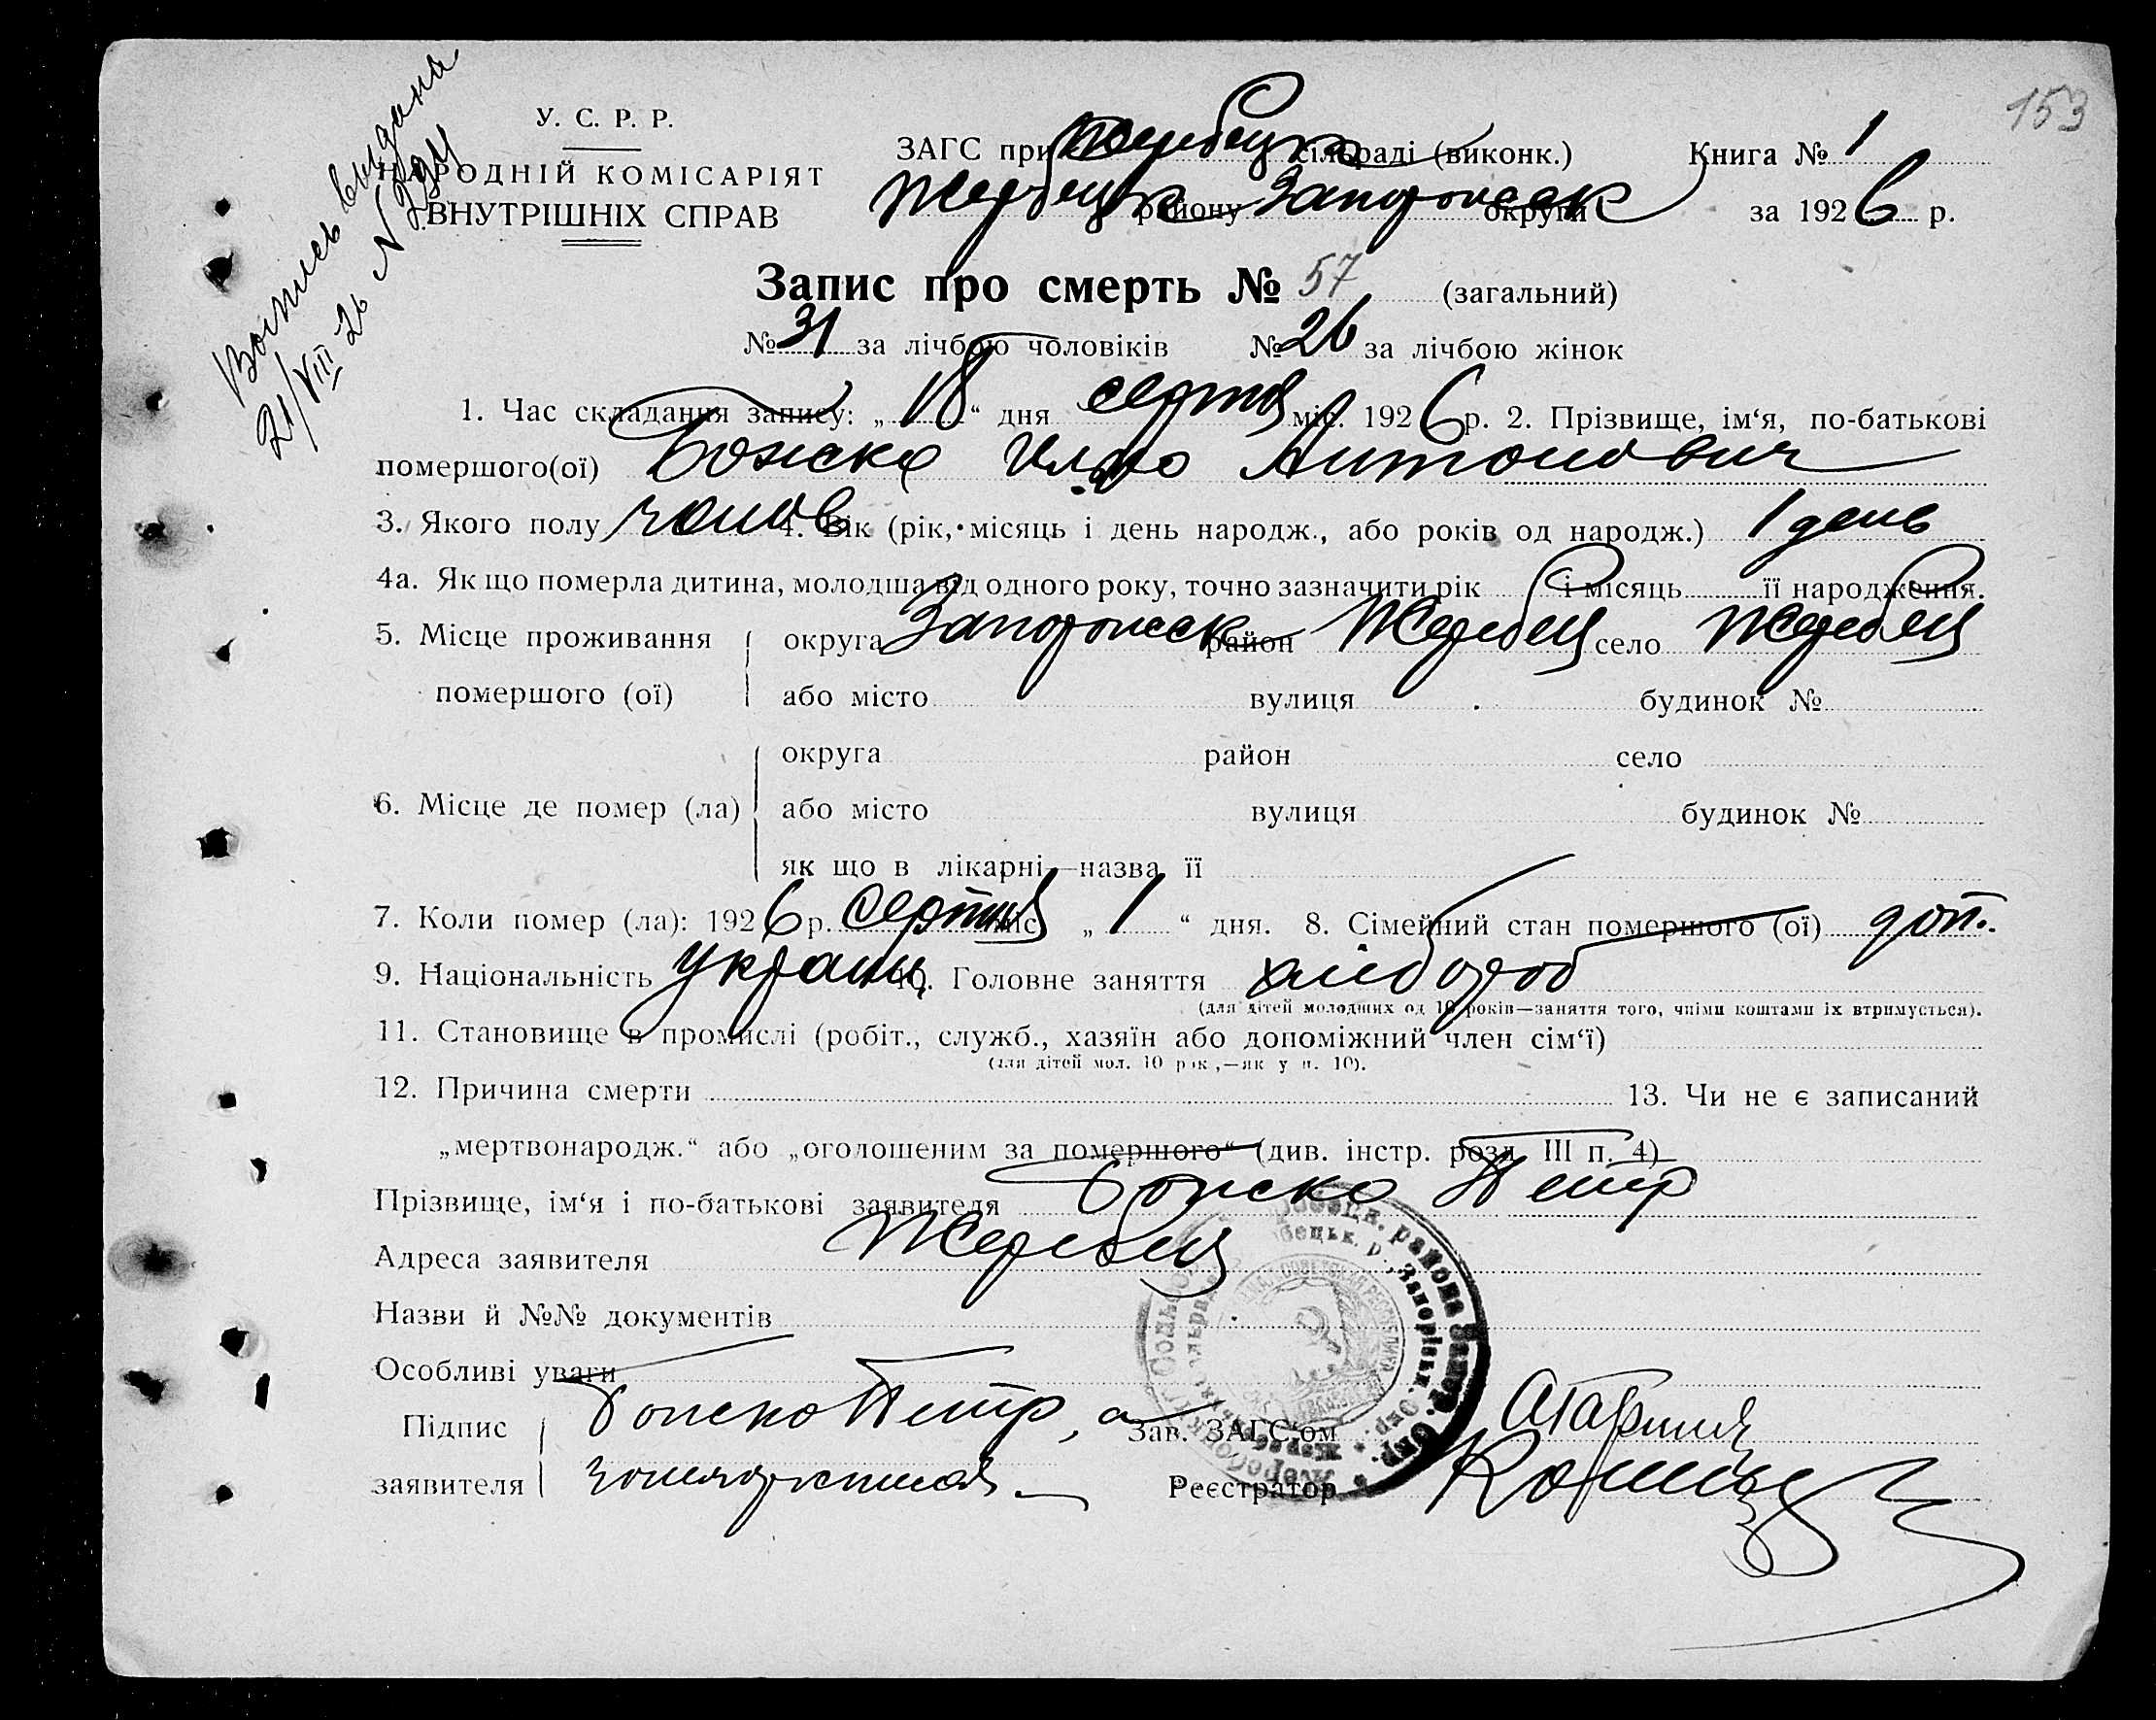 153
Выпись выдана
21/VIII 26 N
У. С. Р. Р.
НАРОДНІЙ КОМІСАРІЯТ
ВНУТРІШНІХ СПРАВ
ЗАГС при Жеребецк сільраді (виконк.) Книга № 1
Жеребецк району Запорожск округи за 1926 р.
Запис про смерть № 57 (загальний)
№ 31 за лічбою чоловіків № 26 за лічбою жінок
1. Час складання запису: „18“ дня серпня міс. 1926 р. 2. Прізвище, ім‘я, по-батькові
помершого(ої) Божско Антонович
3. Якого полу чолов 4. Вік (рік, місяць і день народж., або років од народж.) 1 день
4а. Як що померла дитина, молодша від одного року, точно зазначити рік і місяць її народження.
5. Місце проживання округа Запорожск район Жеребец село Жеребец
помершого (ої) або місто вулиця будинок №
округа район село
6. Місце де помер (ла) або місто вулиця будинок №
як що в лікарні—назва її
7. Коли помер (ла): 1926 р. серпня міс. „1“ дня. 8. Сімейний стан помершого (ої)
9. Національність україн 10. Головне заняття хлібороб
(для дітей молодших од 10 років—заняття того, чиїми коштами їх втримується).
11. Становище в промислі (робіт., служб., хазяїн або допоміжний член сім‘ї)
(для дітей мол. 10 рок.,—як у п. 10).
12. Причина смерти 13. Чи не є записаний
„мертвонародж.“ або „оголошеним за помершого“ (див. інстр. розд. III п. 4)
Прізвище, ім‘я і по-батькові заявителя Божско Петр
Адреса заявителя Жеребец
Назви й №№ документів
Особливі уваги
Підпис Божско Петр, а Зав. ЗАГС‘ом
заявителя Реєстратор